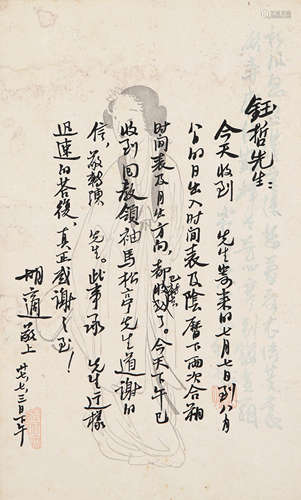 鈺哲先生:
今天收到 先生寄来的七月七日到八月
的日出入时间表及陰曆下两次合朔
时间表及月出方向,都收到了。今天下午已
收到回教領袖馬松亭先生道謝的
信, 先生。此事承 先生这樣
迅速的答復,真正感謝之至!
胡適敬上
卅七,七,三日下午